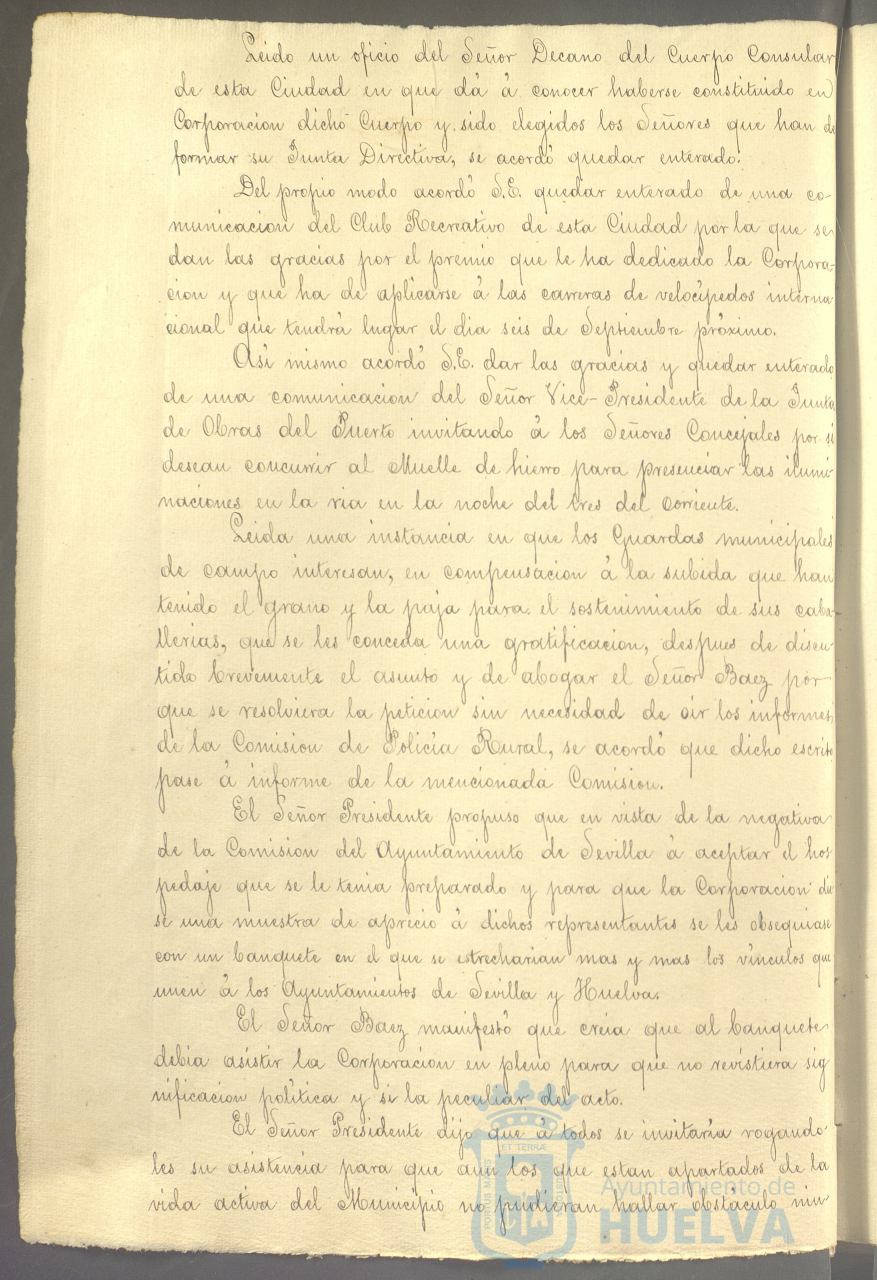 Leido un oficio del Señor Decano del Cuerpo Consular
de esta Ciudad en que dá á conocer haberse constituido en
Corporacion dicho Cuerpo y sido elegidos los Señores que han de
formar su Junta Directiva, se acordó quedar enterado.
Del propio modo acordó S.E. quedar enterado de una co-
municacion del Club Recreativo de esta Ciudad por la que se
dan las gracias por el premio que le ha dedicado la Corpora-
cion y que ha de aplicarse á las carreras de velocípedos interna
cional que tendrá lugar el dia seis de Septiembre próximo.
Asi mismo acordó S.E. dar las gracias y quedar enterado
de una comunicacion del Señor Vice-Presidente de la Junta
de Obras del Puerto invitando á los Señores Concejales por si
desean concurir al Muelle de hierro para presenciar las ilumi-
naciones en la ria en la noche del tres del corriente.
Leida una instancia en que los Guardas municipales
de campo interesan, en compensacion á la subida que han
tenido el grano y la paja para el sostenimiento de sus caba-
llerias, que se les conceda una gratificacion, despues de discu-
tido brevemente el asunto y de abogar el Señor Baez por
que se resolviera la peticion sin necesidad de oir los informes
de la Comision de Policía Rural, se acordó que dicho escrito
pase á informe de la mencionada Comision.
El Señor Presidente propuso que en vista de la negativa
de la Comision del Ayuntamiento de Sevilla á aceptar el hos
pedaje que se le tenia preparado y para que la Corporacion die
se una muestra de aprecio á dichos representantes se les obsequiase
con un banquete en el que se estrecharian mas y mas los vínculos que
unen á los Ayuntamientos de Sevilla y Huelva.
El Señor Baez manifestó que creia que al banquete
debia asistir la Corporacion en pleno para que no revistiera sig
nificacion política y si la peculiar del acto.
El Señor Presidente dijo que á todos se invitaría rogando
les su asistencia para que aun los que estan apartados de la
vida activa del Municipio no pudieran hallar obstáculo nin-
Ayuntamiento de
HUELVA